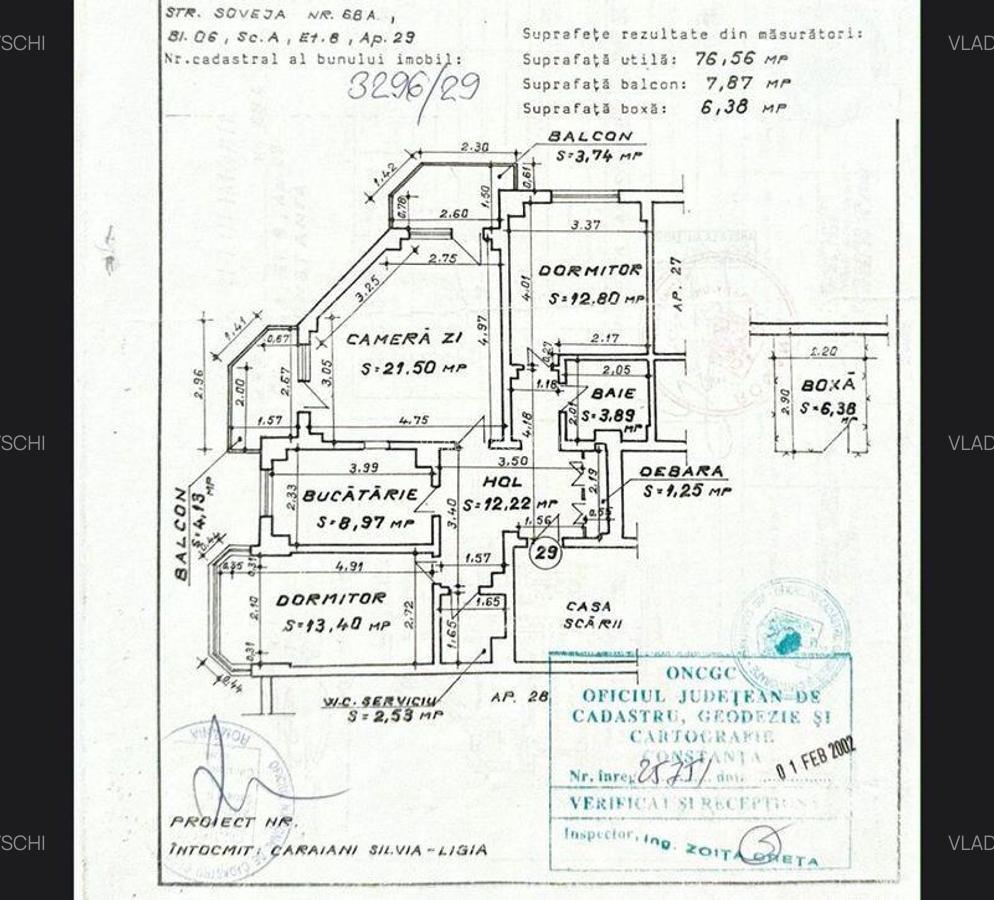 STR. SOVEJA NR. 68A,
Bl. O6, Sc.A, Et.8, Ap.29
Nr.cadastral al bunului imobil:
3296/29
Suprafețe rezultate din măsurători:
Suprafață utilă: 76,56 MP
Suprafață balcon: 7,87 MP
Suprafață boxă: 6,38 MP
VLAD
TSCHI
BALCON
S=3,74 MP
2.30
1.42
0,61
1.50
0,78
2.60
3.37
2.75
3.25
DORMITOR
S=12.80 MP
4.01
AP. 27
CAMERĂ ZI
S=21.50 MP
4,97
1.41
0,67
2.96
2.00
2.67
3.05
2.17
0,27
1.18
2,05
BAIE
S=3,89 MP
2,01
2.20
BOXĂ
S=6,38 MP
2.90
1.57
4.75
4.18
VLAD
TSCHI
3.99
3,50
BUCĂTĂRIE
S=8,97 MP
2.33
HOL
S=12,22 MP
3.40
2.19
DEBARA
S=1,25 MP
0.55
1.56
29
BALCON
S=4,13 MP
0.44
0.35
0.31
4.91
1.57
DORMITOR
S=13,40 MP
2.10
2.72
1.65
1.65
CASA
SCĂRII
0,31
0.44
W.C. SERVICIU
S=2,53 MP
AP. 28
ONCGC
OFICIUL JUDEȚEAN DE
CADASTRU, GEODEZIE ȘI
CARTOGRAFIE
CONSTANȚA
Nr. înreg. 2575/ dat.
01 FEB 2002
VERIFICAT ȘI RECEPȚION
Inspector, ing. ZOIȚA GRETA
ROMÂNIA
PROIECT NR.
ÎNTOCMIT: CARAIANI SILVIA-LIGIA
VLAD
TSCHI